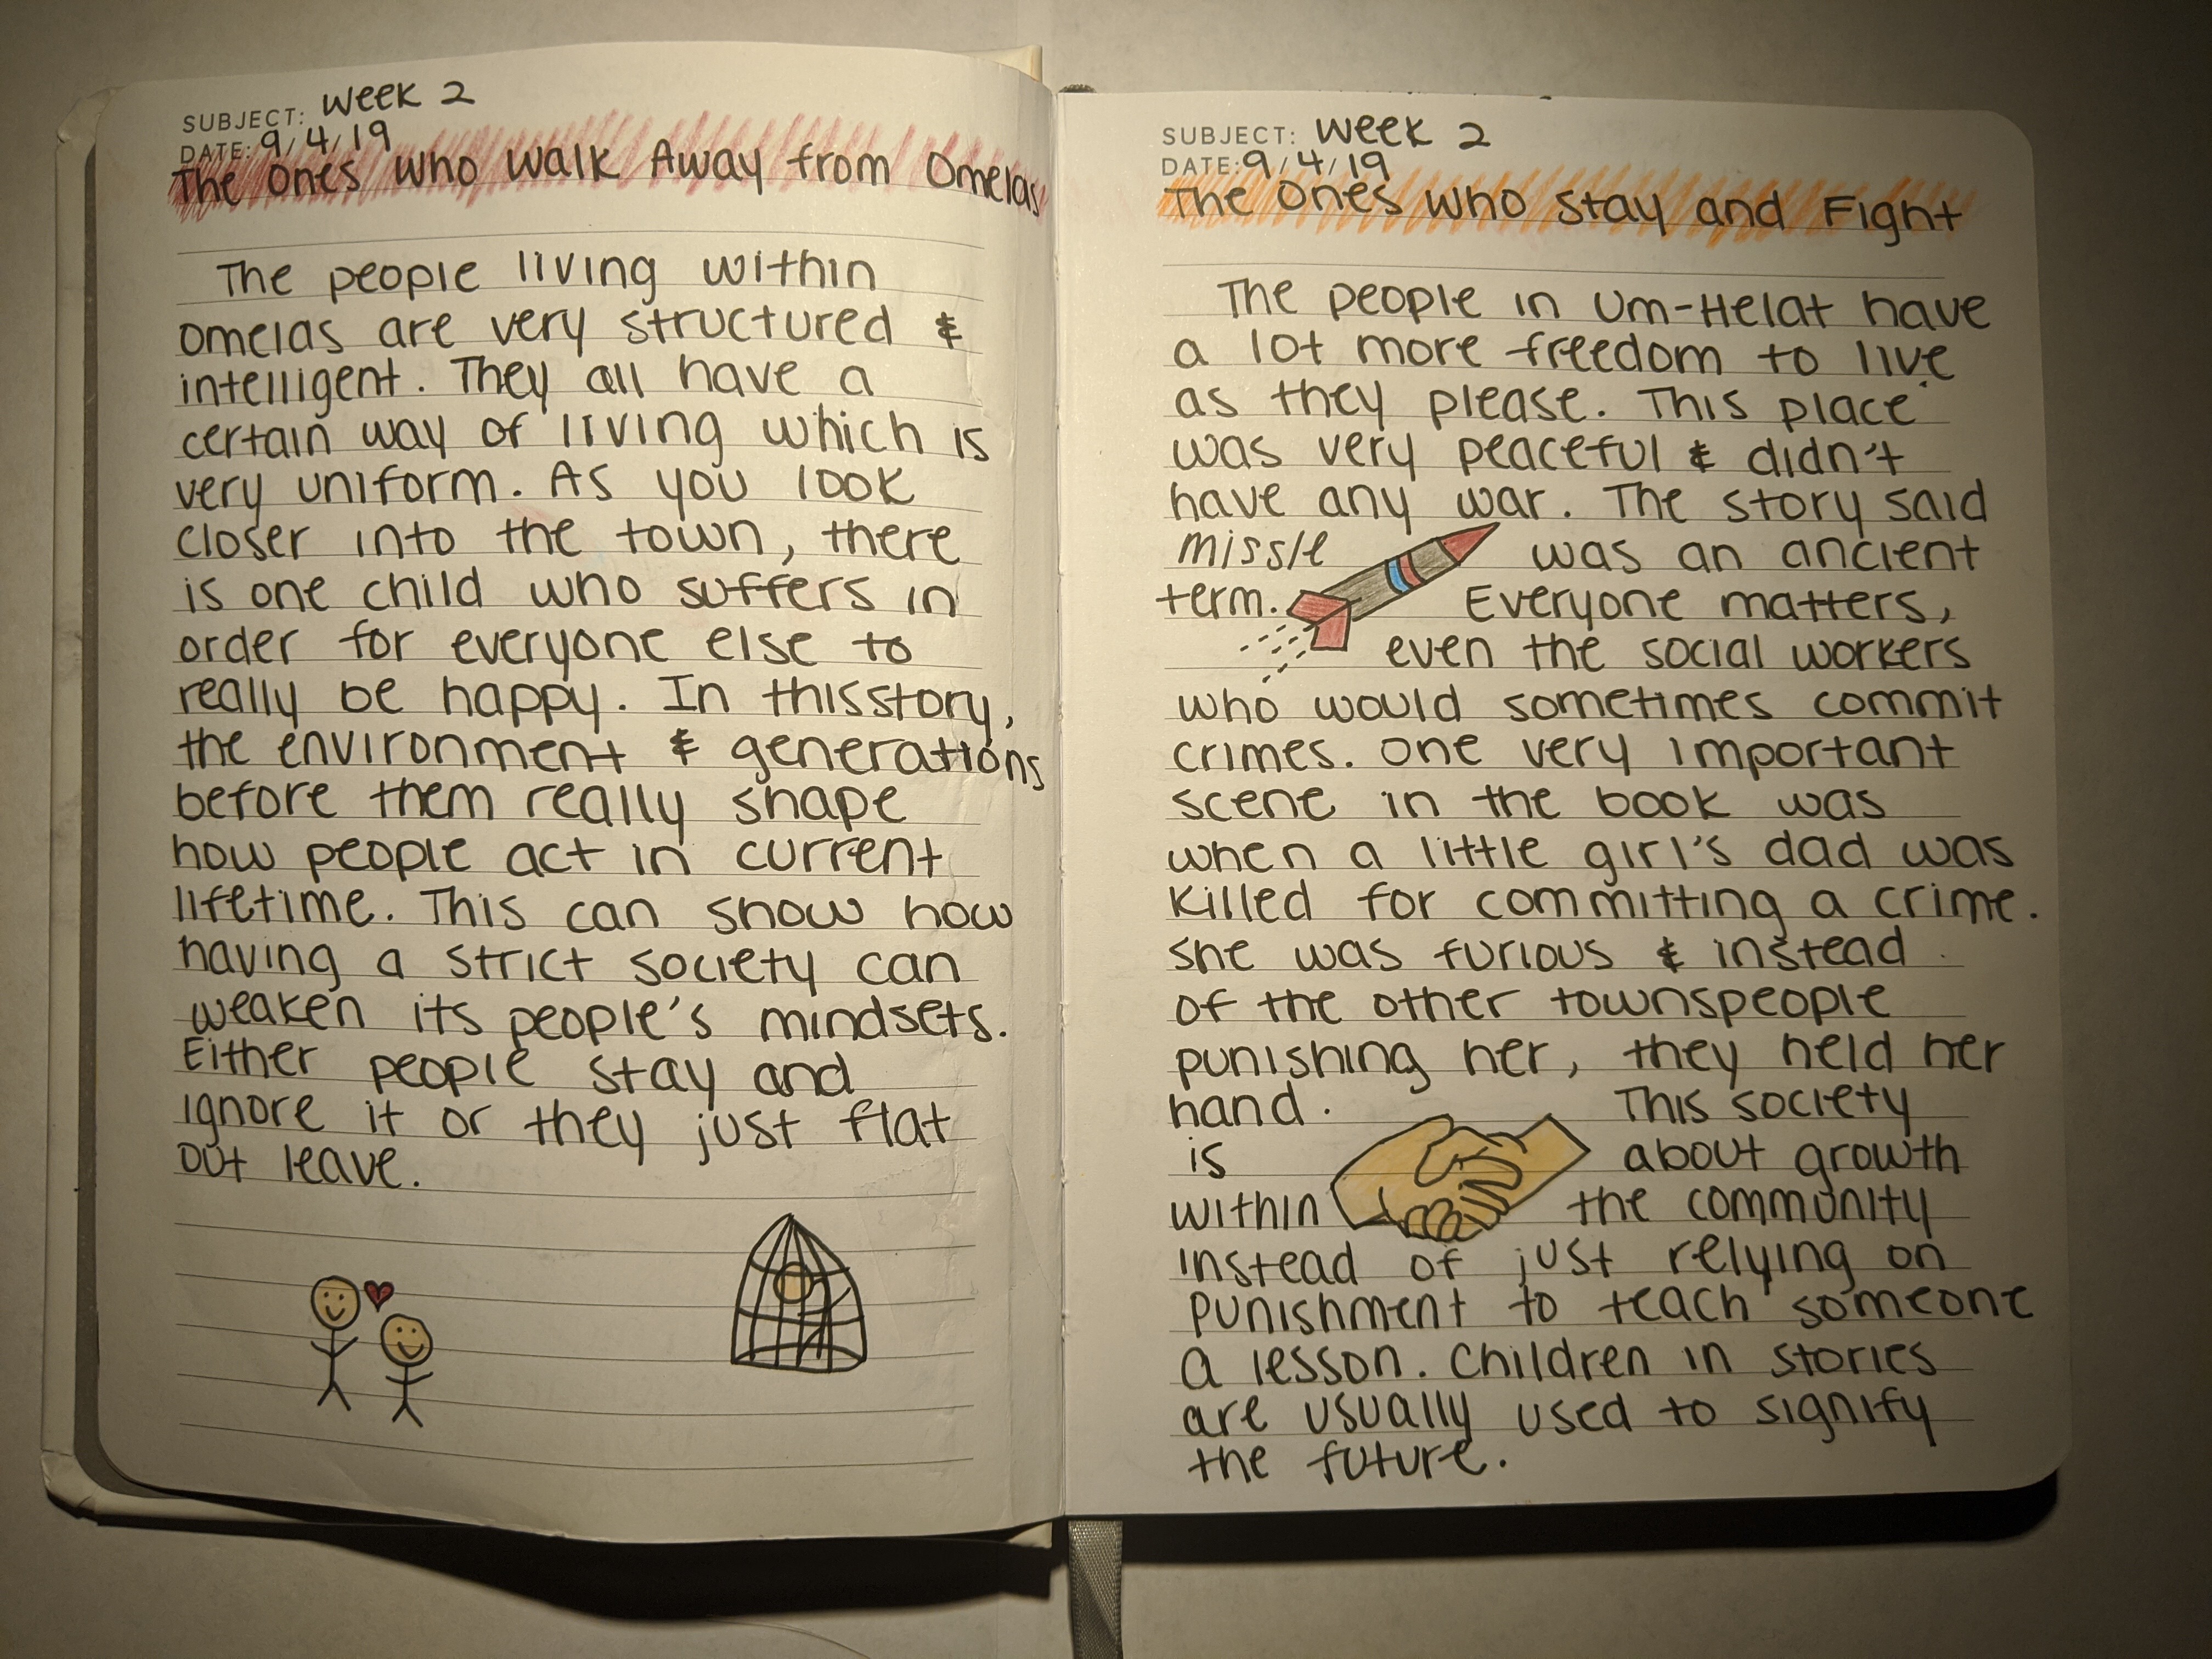 SUBJECT: Week 2
DATE: 9/4/19
The Ones Who Walk Away from Omelas
The people living within
Omelas are very structured &
intelligent. They all have a
certain way of living which is
very uniform. As you look
closer into the town, there
is one child who suffers in
order for everyone else to
really be happy. In this story,
the environment & generations
before them really shape
how people act in current
lifetime. This can show how
having a strict society can
weaken its people's mindsets.
Either people stay and
ignore it or they just flat
out leave.
SUBJECT: Week 2
DATE: 9/4/19
The Ones Who Stay and Fight
The people in Um-Helat have
a lot more freedom to live
as they please. This place
was very peaceful & didn't
have any war. The story said
missle was an ancient
term. Everyone matters,
even the social workers
who would sometimes commit
crimes. One very important
scene in the book was
when a little girl's dad was
killed for committing a crime.
She was furious & instead
of the other townspeople
punishing her, they held her
hand. This society
is about growth
within the community
instead of just relying on
punishment to teach someone
a lesson. Children in stories
are usually used to signify
the future.